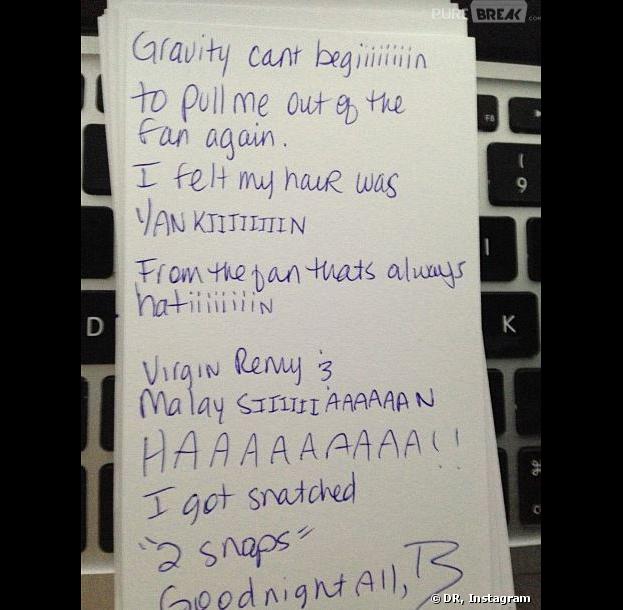 PUREBREAK.COM
Gravity cant begiiiiiiiin
to pull me out of the
fan again.
I felt my hair was
YANKIIIIIIIIN
From the fan thats always
hatiiiiiiiiiN
Virgin Remy &
Malay SIIIIIIAAAAAAN
HAAAAAAAAA!!
I got snatched
"2 snaps"
Goodnight All, B
F8
(
9
I
D
K
© DR, Instagram